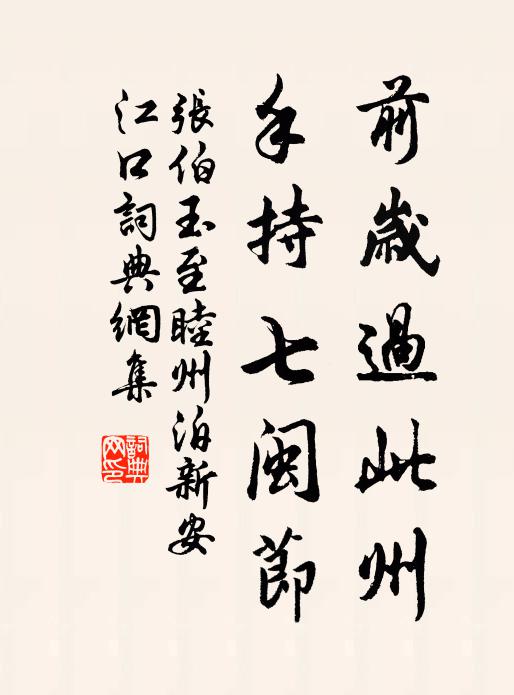 前歲過此州
手持七閩節
張伯玉至睦州泊新安
江口詞典網集
詞典网印